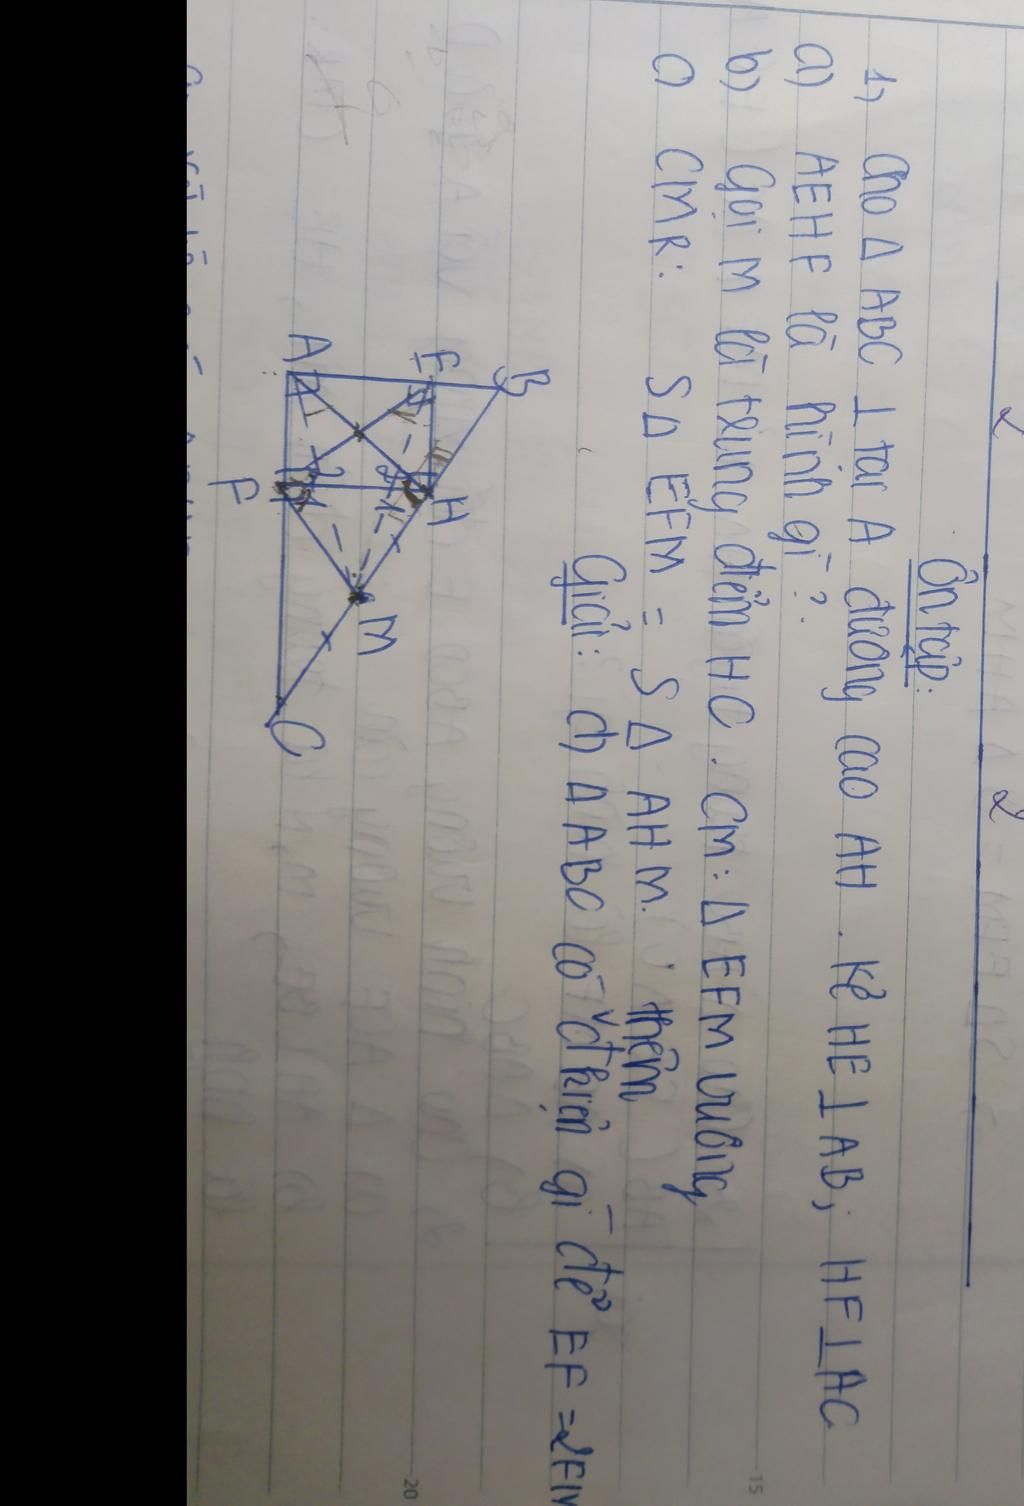 Ôn tập:
1, Cho Δ ABC ⊥ tại A đường cao AH . Kẻ HE ⊥ AB; HF ⊥ AC
a) AEHF là hình gì?.
b) Gọi M là trung điểm HC . CM: Δ EFM vuông
c) CMR: SΔ EFM = SΔ AHM.
Giải: d) Δ ABC có thêm đ kiện gì để EF = 2FM
B
E
A
H
F
M
C
15
20